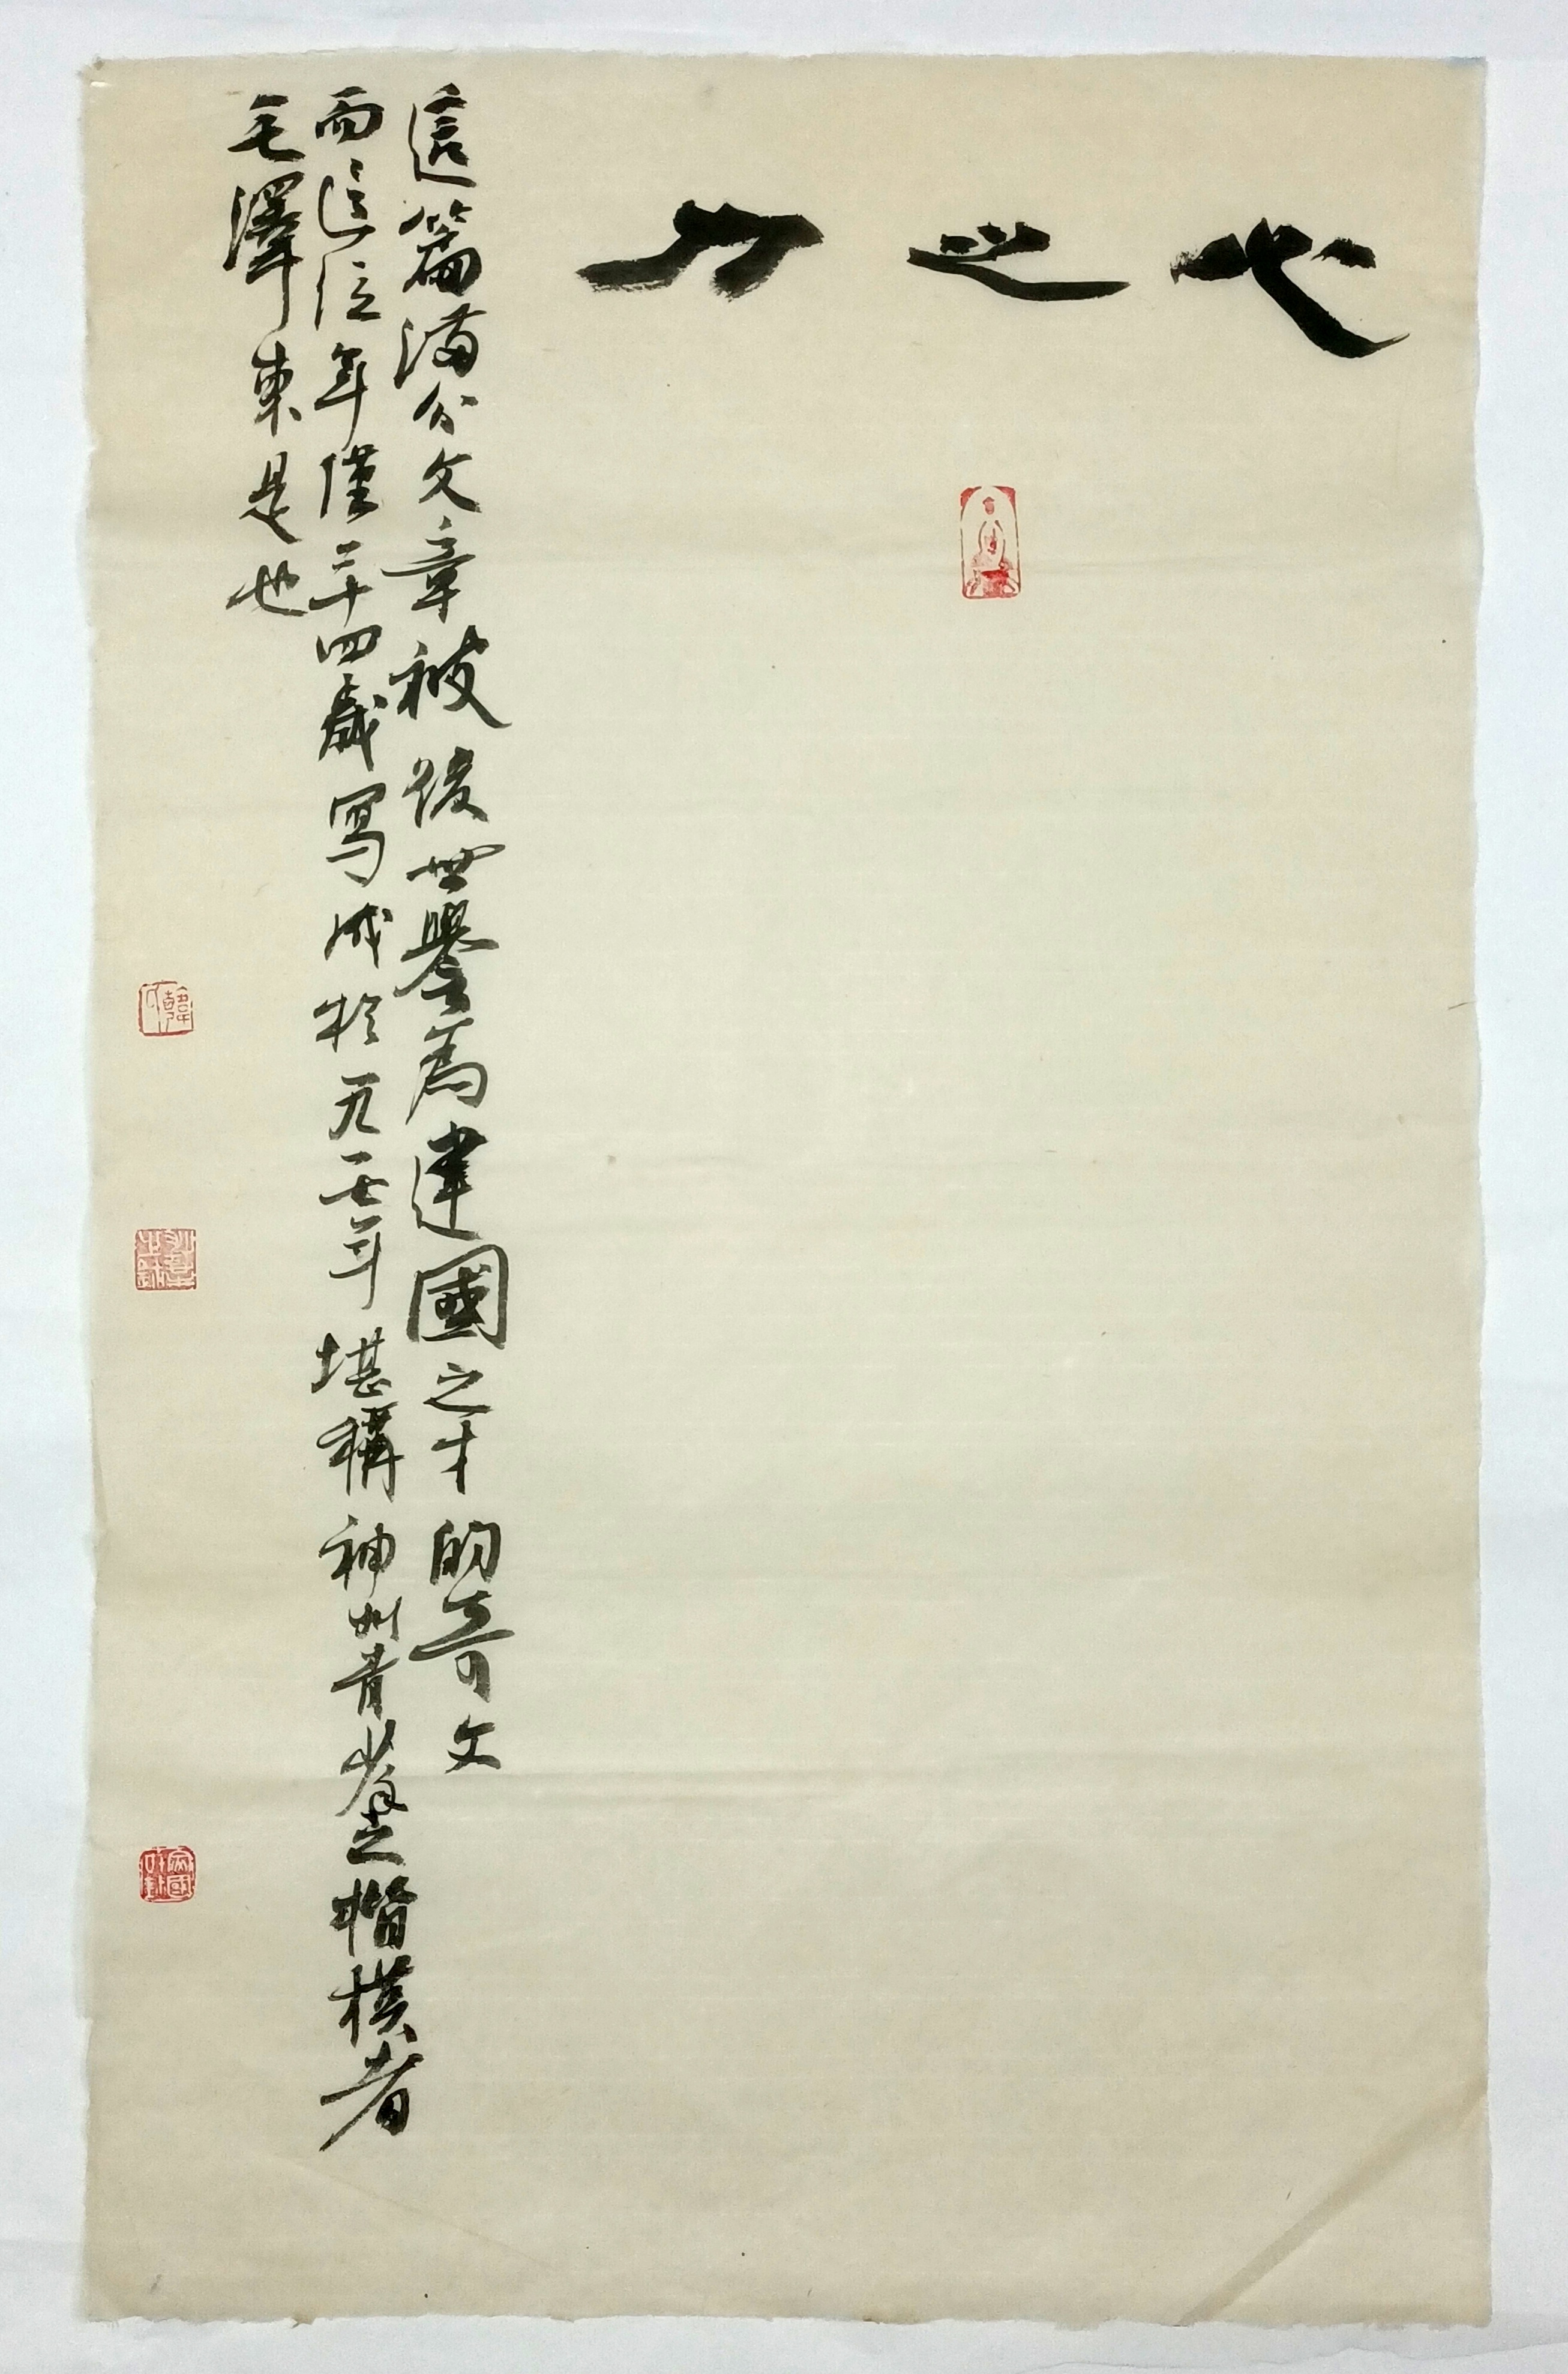 心之力
這篇滿分文章被後世譽為建國之才的奇文
而這位年僅二十四歲寫成於一九一七年堪稱神州青年之楷模者
毛澤東是也